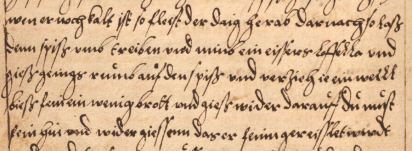 wen er noch kalt ist so fleust der daig herab darnach so lass
den spiss umb treiben und nims ein eissers leffella und
geuss geings rums auf den spiss und verzich ie ein weill
biss sein ein wenig brott und geuss wider darauf du must
sein hin und wider giessenn das er feinn gereisslet wirdt